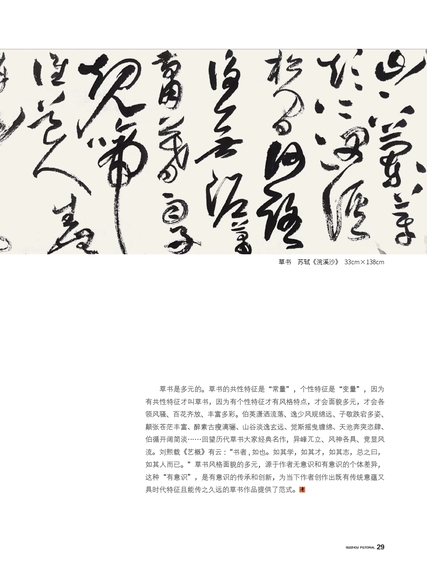 山下兰芽
短浸溪
松间沙路
净无泥萧
萧暮雨子
规啼
谁道人生
草书 苏轼《浣溪沙》 33cm×138cm
草书是多元的。草书的共性特征是“常量”，个性特征是“变量”，因为
有共性特征才叫草书，因为有个性特征才有风格特点，才会面貌多元，才会各
领风骚、百花齐放、丰富多彩。伯英潇洒流落、逸少风规绵远、子敬跌宕多姿、
颠张苍茫丰富、醉素古瘦漓骊、山谷淡逸玄远、觉斯摇曳缠绵、天池奔突恣肆、
伯循开阔简淡……回望历代草书大家经典名作，异峰兀立、风神各具、竞显风
流。刘熙载《艺概》有云：“书者，如也。如其学，如其才，如其志，总之曰，
如其人而已。”草书风格面貌的多元，源于作者无意识和有意识的个体差异，
这种“有意识”，是有意识的传承和创新，为当下作者创作出既有传统意蕴又
具时代特征且能传之久远的草书作品提供了范式。
GUIZHOU PICTORIAL 29